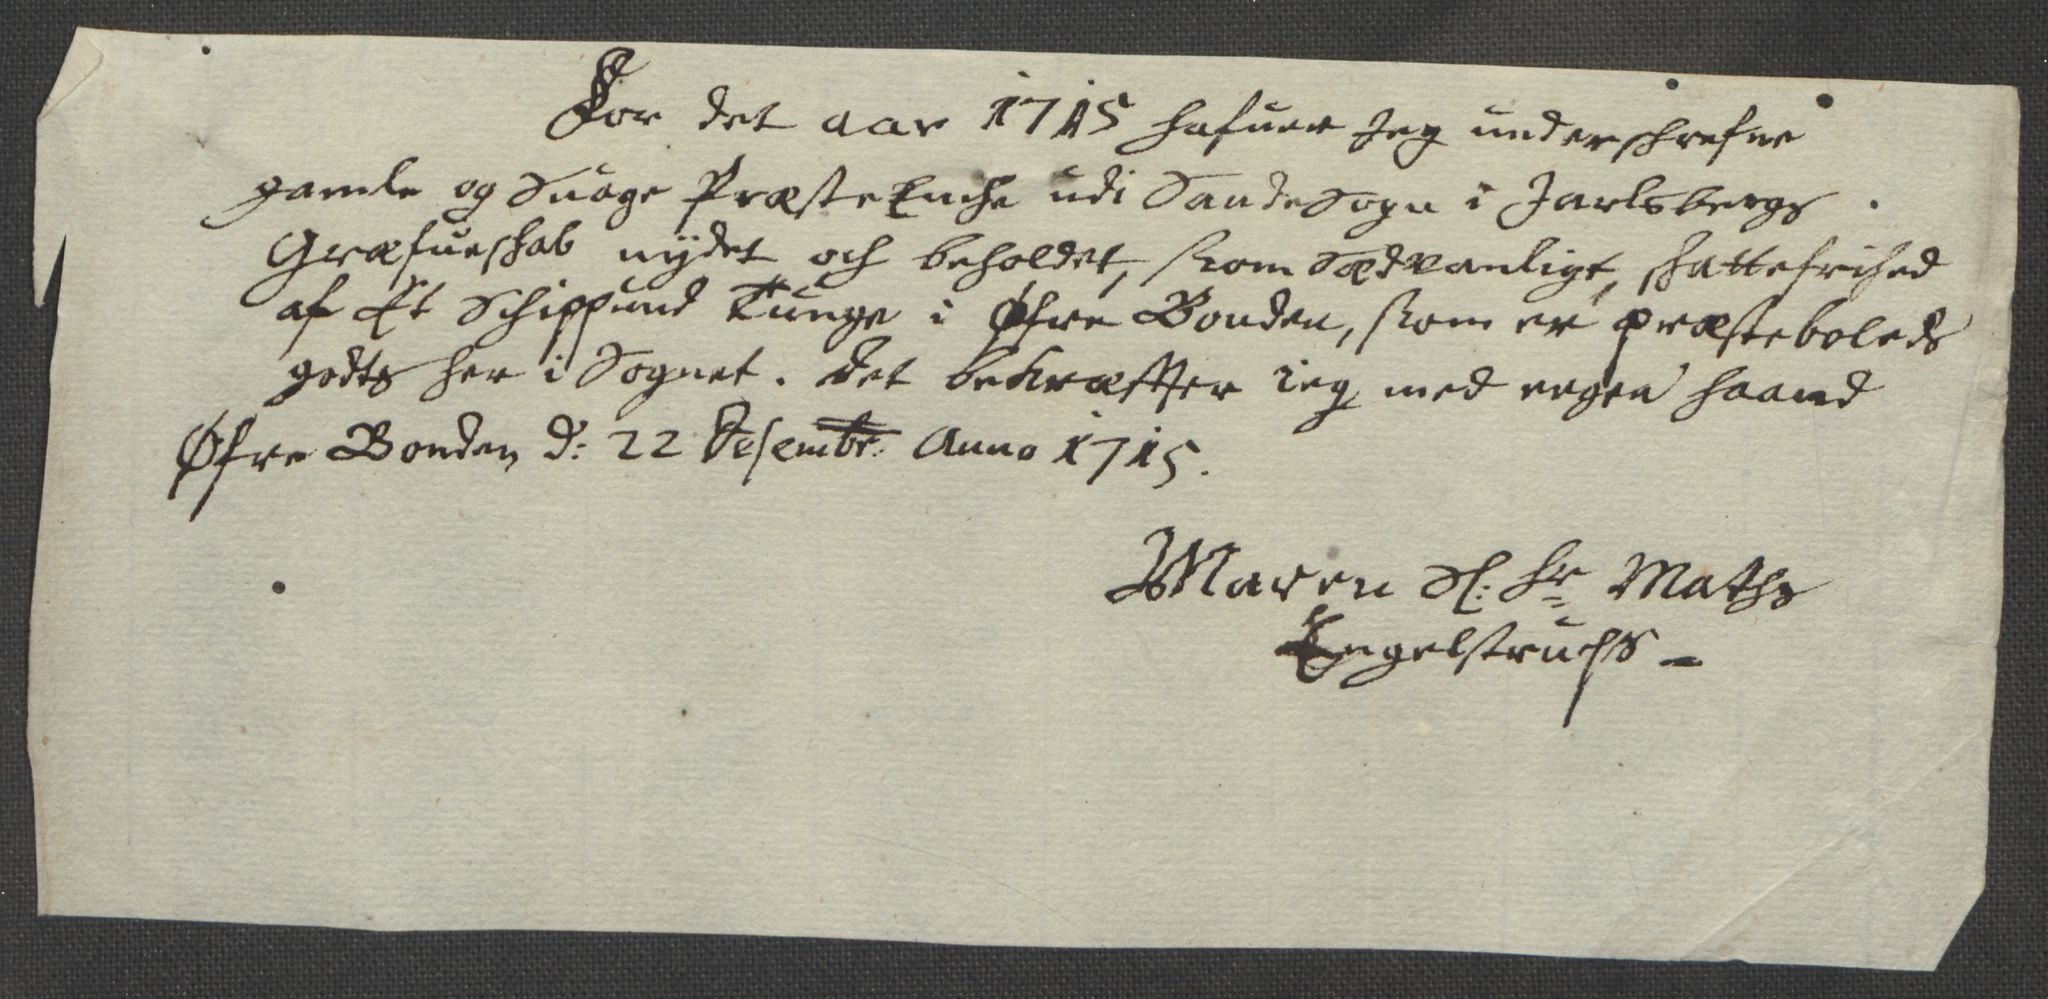 For det aar 1715 hafuer Jeg underschrefne
gamle og Suage Præste Enche udi Sande Sogn i Jarlsbergs
Græfueschab nydet och beholdet, som sædvanligt, schattefrihed
af Et Schippund Tunge i Øfre Bonden, som er præsteboleds
godts her i Sognet. Det bekræffter ieg med eegen haand
Øfre Bonden d: 22 Desembr: Anno 1715.
Maren Sl: Hr Maths
Engelstruchs -